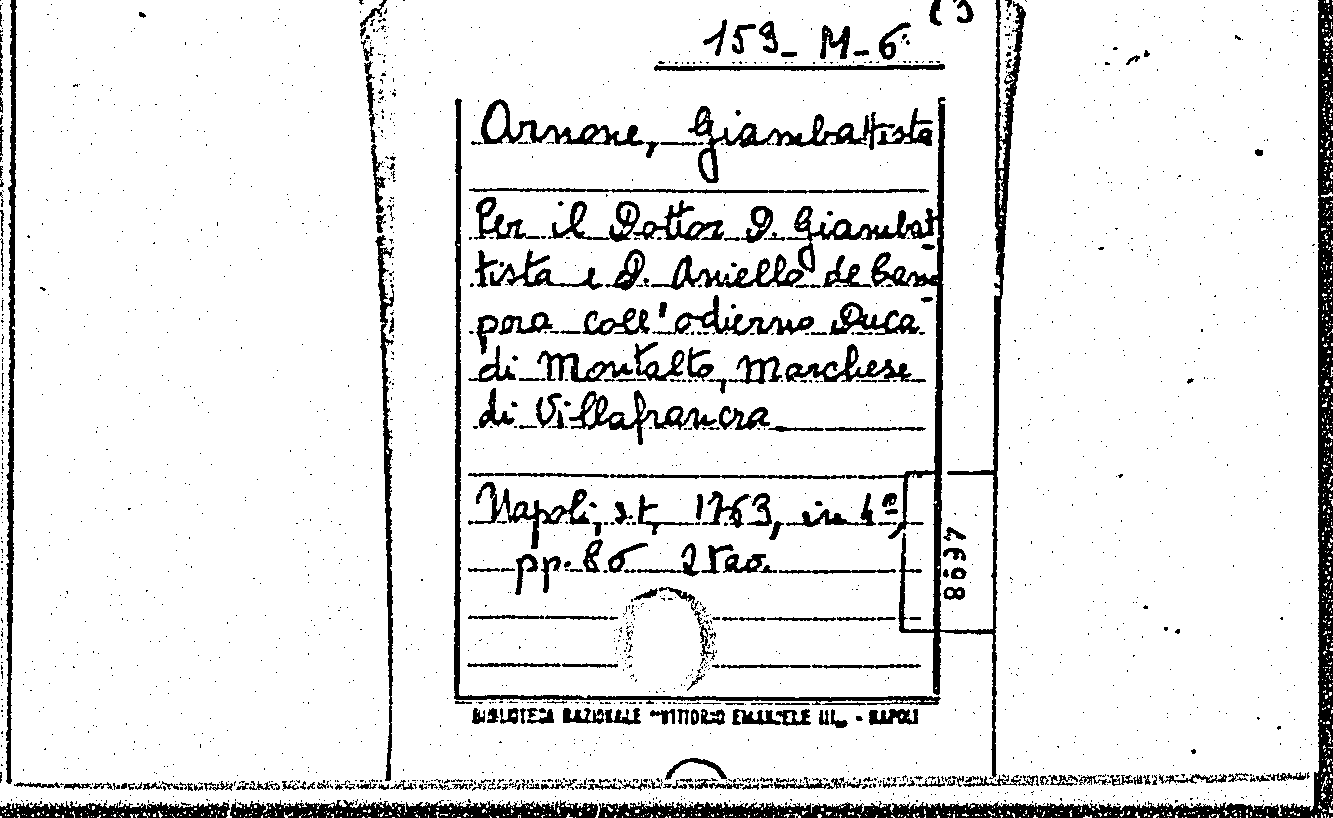 153- M-6
Arnone, Giambattista
Per il Dottor D. Giambat-
tista e D. Aniello de Cam-
pora coll'odierno Duca
di Montalto, Marchese
di Villafranca
Napoli, s.t, 1763, in 4º,
pp. 86
8697
BIBLIOTECA NAZIONALE "VITTORIO EMANUELE III" - NAPOLI